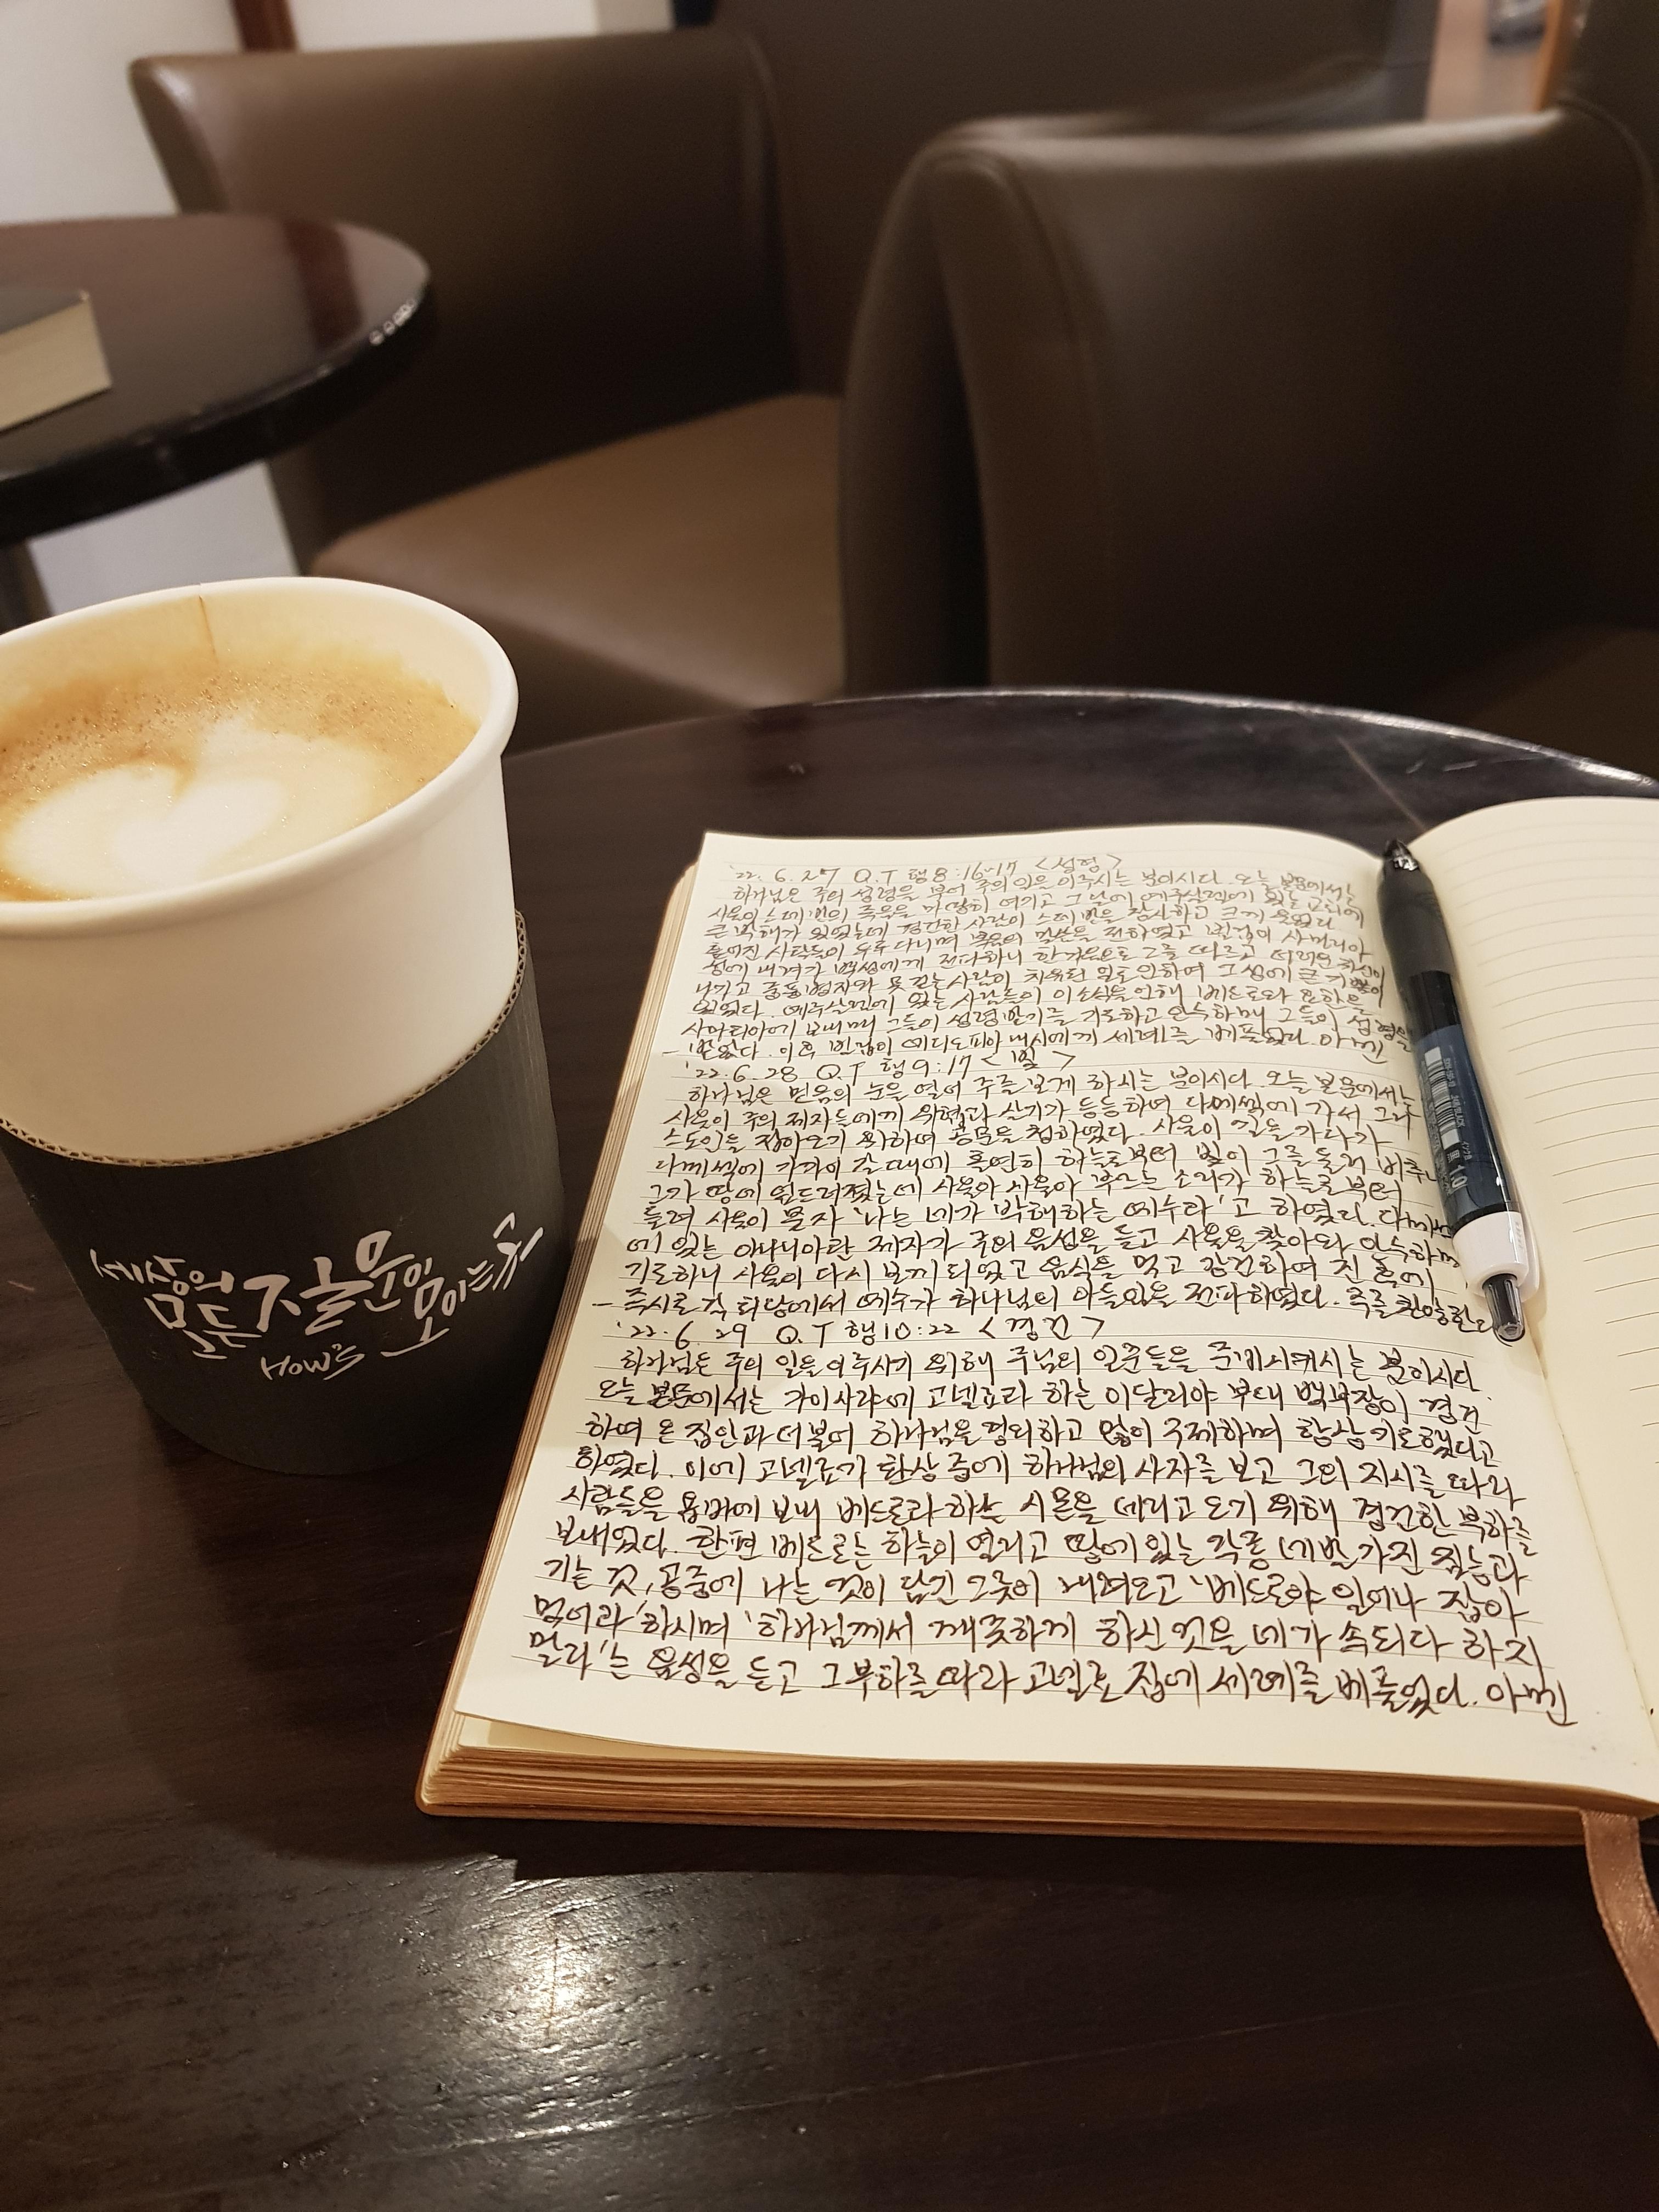 세상의
모든 질문이
모이는 곳
HOW's
'22. 6. 27 Q.T 행8:16~17 <성령>
하나님은 주의 성령을 부어 주의 일을 이루시는 분이시다. 오늘 본문에서는
사울이 스데반의 죽음을 마땅히 여기고 그 날에 예루살렘에 있는 교회에
큰 박해가 있었는데 경건한 사람이 스데반을 장사하고 크게 울었다
흩어진 사람들이 두루 다니며 복음의 말씀을 전하였고 빌립이 사마리아
성에 내려가 백성에게 전파하니 한마음으로 그를 따르고 더러운 귀신이
나가고 중풍병자와 못 걷는 사람이 치유된 일로 인하여 그 성에 큰 기쁨이
있었다. 예루살렘에 있는 사람들이 이 소식을 인해 베드로와 요한을
사마리아에 보내매 그들이 성령받기를 기도하고 안수하매 그들이 성령을
받았다. 이후 빌립이 에디오피아 내시에게 세례를 베풀었다. 아멘
'22. 6. 28 Q.T 행9:17 <빛>
하나님은 믿음의 눈을 열어 주를 보게 하시는 분이시다. 오늘 본문에서는
사울이 주의 제자들에게 위협과 살기가 등등하여 다메섹에 가서 그리
스도인을 잡아오기 위하여 공문을 청하였다. 사울이 길을 가다가
다메섹에 가까이 갈 때에 홀연히 하늘로부터 빛이 그를 둘러 비추니
그가 땅에 엎드러졌는데 사울아 사울아 부르는 소리가 하늘로부터
들려 사울이 묻자 '나는 네가 박해하는 예수라'고 하였다. 다메섹
에 있는 아나니아란 제자가 주의 음성을 듣고 사울을 찾아와 안수하며
기도하니 사울이 다시 보게 되었고 음식을 먹고 강건하여 진 후에
즉시로 각 회당에서 예수가 하나님의 아들임을 전파하였다. 주를 찬양한다
'22. 6 29 Q.T 행10:22 <경건>
하나님은 주의 일을 이루시기 위해 주님의 일꾼들을 준비시켜시는 분이시다.
오늘 본문에서는 가이사랴에 고넬료라 하는 이달리야 부대 백부장이 경건
하여 온 집안과 더불어 하나님을 경외하고 많이 구제하며 항상 기도했다고
하였다. 이에 고넬료가 환상 중에 하나님의 사자를 보고 그의 지시를 따라
사람들을 욥바에 보내 베드로라 하는 시몬을 데리고 오기 위해 경건한 부하를
보내었다. 한편 베드로는 하늘이 열리고 땅에 있는 각종 네발 가진 짐승과
기는 것, 공중에 나는 것이 담긴 그릇이 내려오고 '베드로야 일어나 잡아
먹어라' 하시며 '하나님께서 깨끗하게 하신 것을 네가 속되다 하지
말라'는 음성을 듣고 그 부하를 따라 고넬료 집에 세례를 베풀었다. 아멘
1.0